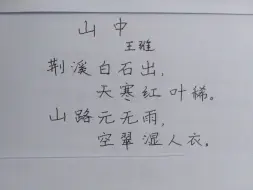 山中
王维
荆溪白石出，
天寒红叶稀。
山路元无雨，
空翠湿人衣。